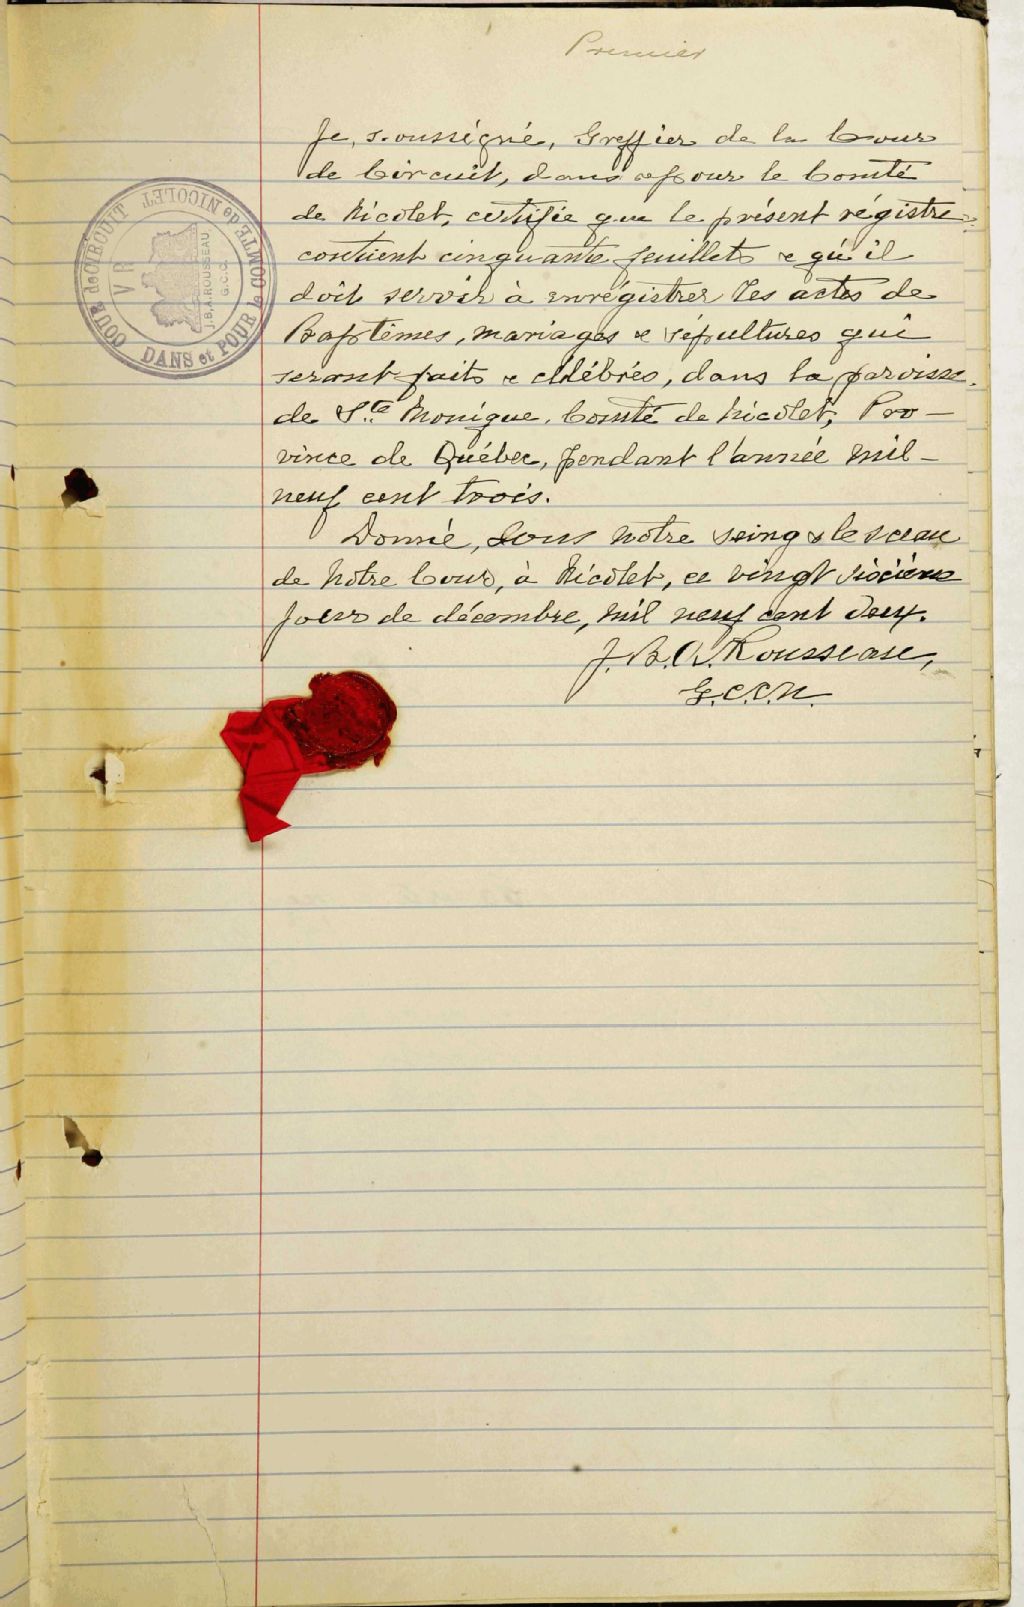 Premier
Je, soussigné, Greffier de la Cour
de Circuit, dans & pour le Comté
de Nicolet, certifie que le présent régistre
contient cinquante feuillets & qu'il
doit servir à enrégistrer les actes de
Baptêmes, mariages & sépultures qui
seront faits & célébrés, dans la paroisse
de Ste Monique, Comté de Nicolet, Pro-
vince de Québec, pendant l'année mil-
neuf cent trois.
Donné, sous notre seing & le sceau
de notre Cour, à Nicolet, ce vingt sixième
jour de décembre, mil neuf cent deux.
J. B. A. Rousseau,
G.C.C.N.
COUR de CIRCUIT DANS et POUR le COMTÉ de NICOLET
V R
J.B.A. ROUSSEAU
G.C.C.